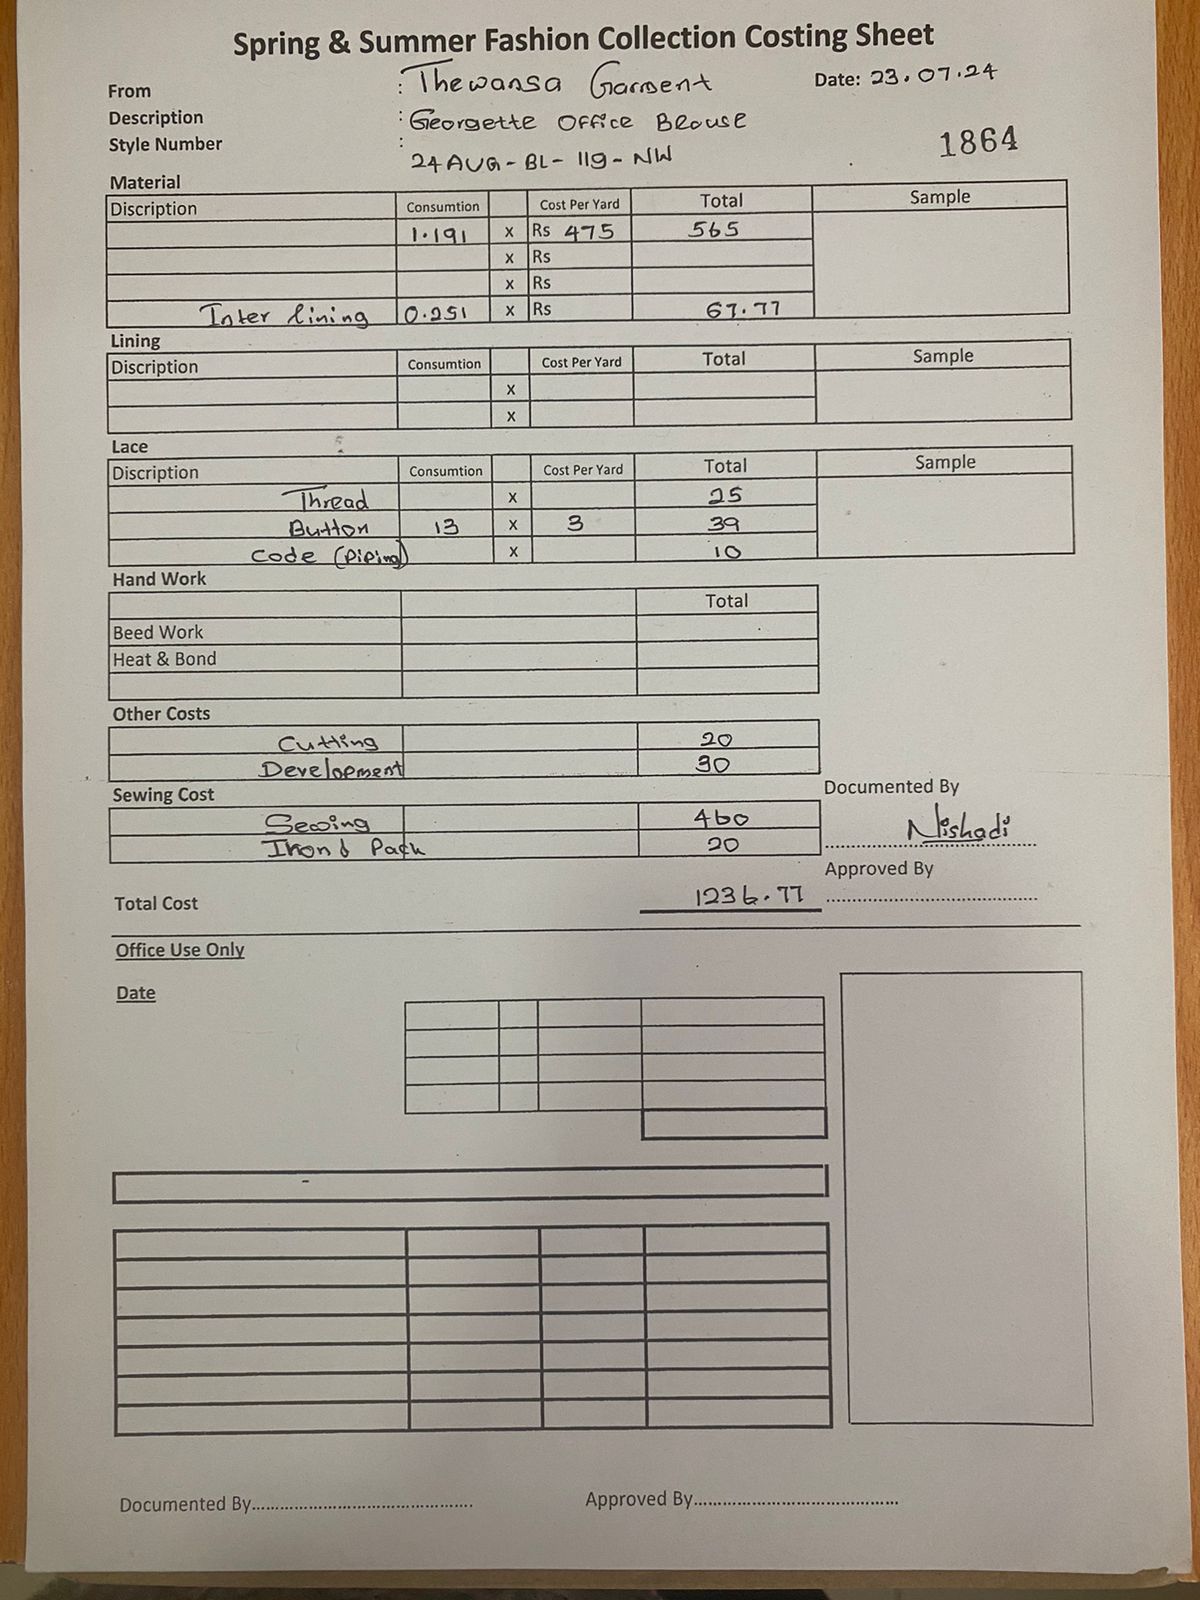 Spring & Summer Fashion Collection Costing Sheet
From : Thewansa Garment Date: 23.07.24
Description : Georgette Office Blouse
Style Number : 24 AUG - BL - 119 - NW 1864
Material
Discription Consumtion Cost Per Yard Total Sample
1.191 x Rs 475 565
x Rs
x Rs
Inter lining 0.251 x Rs 67.77
Lining
Discription Consumtion Cost Per Yard Total Sample
x
x
Lace
Discription Consumtion Cost Per Yard Total Sample
Thread x 25
Button 13 x 3 39
Code (Piping) x 10
Hand Work
Total
Beed Work
Heat & Bond
Other Costs
Cutting 20
Development 30
Sewing Cost Documented By
Sewing 460 Nishadi
Iron & Pack 20
Approved By
Total Cost 1236.77
Office Use Only
Date
-
Documented By............................................ Approved By............................................